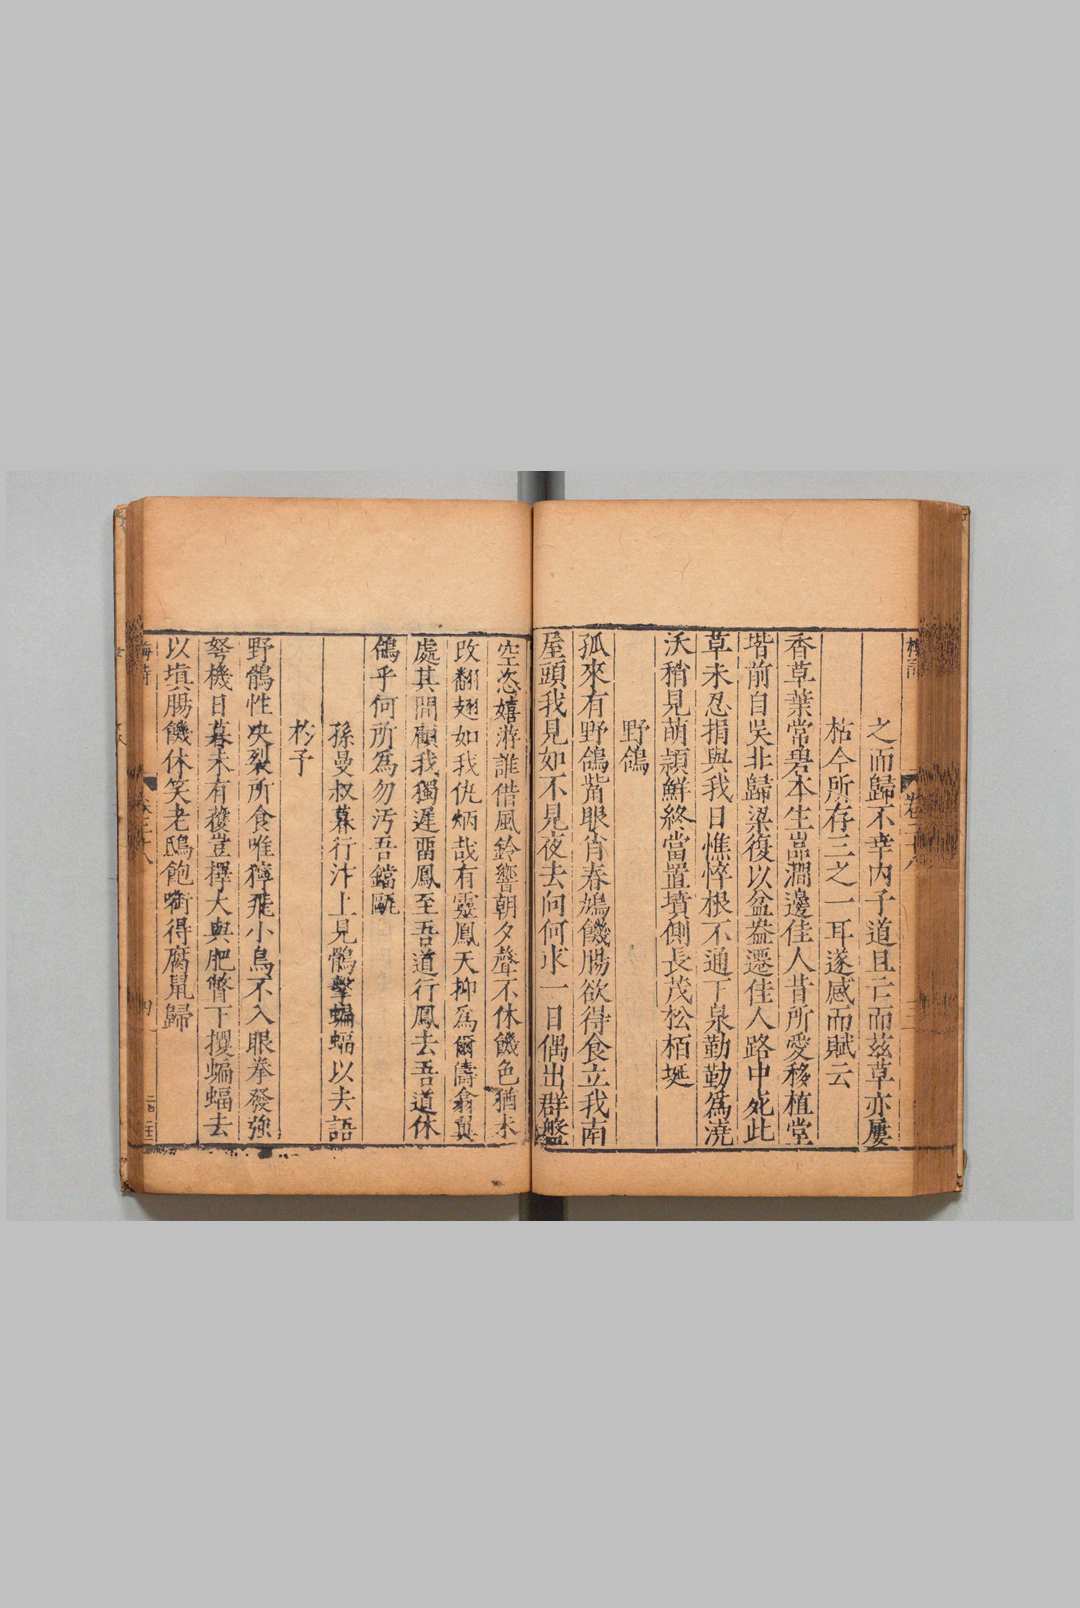 之而歸不幸内子道且亡而茲草亦屢
枯今所存三之一耳遂感而賦云
香草葉常碧本生嵓澗邊佳人昔所愛移植堂
堦前自吳非歸梁復以盆盎遷佳人路中死此
草未忍捐與我日憔悴根不通下泉勤勤爲澆
沃稍見萌穎鮮終當置墳側長茂松栢埏
野鴿
孤來有野鴿觜眼肖春鳩饑腸欲得食立我南
屋頭我見如不見夜去向何求一日偶出群盤
空恣嬉游誰借風鈴響朝夕聲不休饑色猶未
改翻翅如我仇炳哉有靈鳳天抑爲爾儔翕翼
處其間顧我獨遲畱鳳至吾道行鳳去吾道休
鴿乎何所爲勿汚吾鐺甌
孫曼叔暮行汴上見鶻擊蝙蝠以去語
於予
野鶻性決裂所食唯獰飛小鳥不入眼拳發強
弩機日暮未有獲豈擇大與肥瞥下攫蝙蝠去
以填腸饑休笑老鴟飽嚇得腐鼠歸